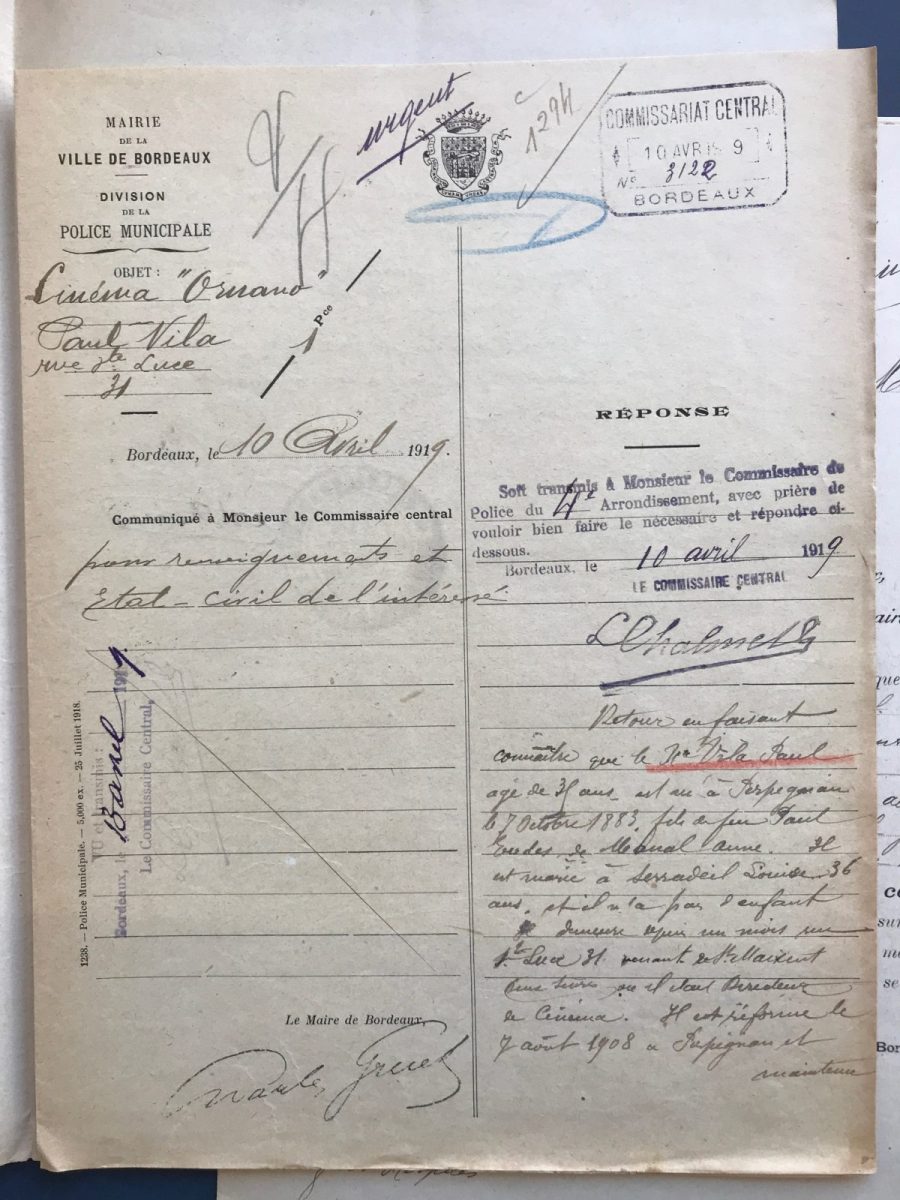 MAIRIE
DE LA
VILLE DE BORDEAUX
DIVISION
DE LA
POLICE MUNICIPALE
OBJET :
Cinéma "Ornano"
Paul Vila
rue Ste Luce
31
1 Pce
urgent
1294
COMMISSARIAT CENTRAL
10 AVR 19 9
No 3122
BORDEAUX
Bordeaux, le 10 Avril 1919.
Communiqué à Monsieur le Commissaire central
pour renseignements et
Etat-civil de l'intéressé
VU et transmis :
Bordeaux, le 1919
Le Commissaire Central,
1238. — Police Municipale. — 5,000 ex. — 25 Juillet 1918.
Le Maire de Bordeaux,
RÉPONSE
Soit transmis à Monsieur le Commissaire de
Police du 4e Arrondissement, avec prière de
vouloir bien faire le nécessaire et répondre ci-
dessous.
Bordeaux, le 10 avril 1919
LE COMMISSAIRE CENTRAL
Retour en faisant
connaître que le Vila Paul
agé de ans est né à Perpignan
le 7 Octobre 1883, fils de feu Paul
et de Anne. Il
est marié à Serradeil Louise 36
ans, et il n'a pas d'enfant
demeure un mois rue
Ste Luce 31 venant de St Maixent
Deux Sèvres où il était Directeur
de Cinéma. Il est réformé le
7 août 1908 à Perpignan et
maintenu